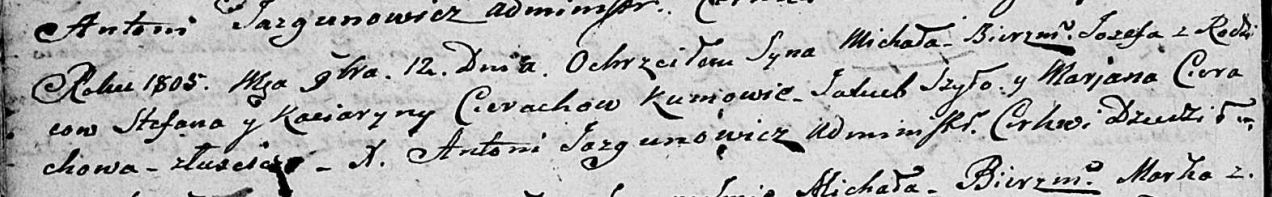 Antoni Jazgunowicz administr. Cerkwi
Roku 1805. Mca 9bra. 12. Dnia. Ochrzciłem Syna Michała - Bierzm°. Jozefa z Rodzi
cow Stefana y Kaciaryny Cierachow Kumowie - Jakub Szyło. y Marjana Ciera
chowa - z - X. Antoni Jazgunowicz administr. Cerkwi
Michała - Bierzm° Marka z.